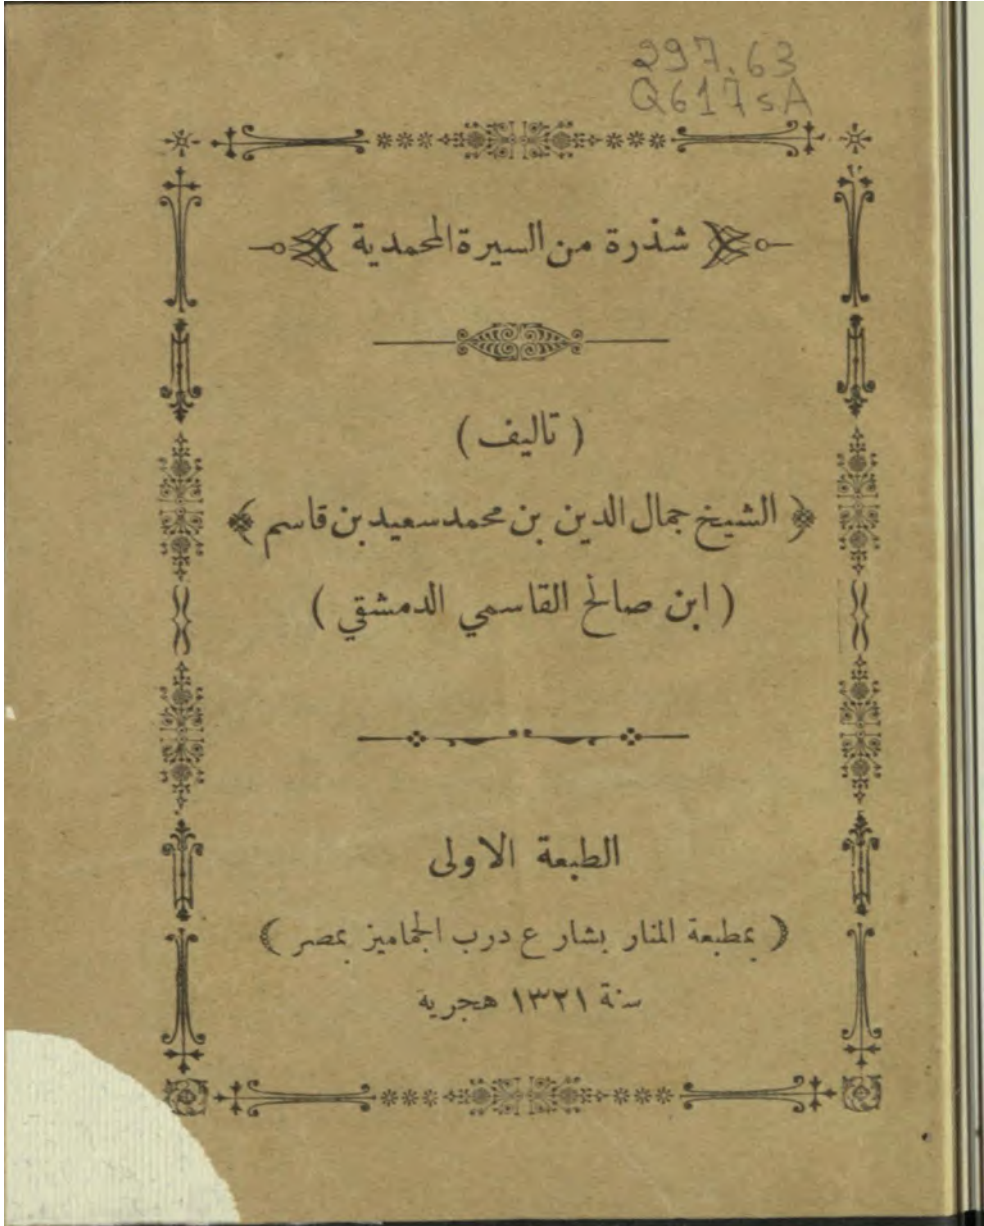 297.63
Q617sA
شذرة من السيرة المحمدية
( تاليف )
الشيخ جمال الدين بن محمد سعيد بن قاسم
( ابن صالح القاسمي الدمشقي )
الطبعة الاولى
( بمطبعة المنار بشارع درب الجماميز بمصر )
سنة ١٣٢١ هجرية